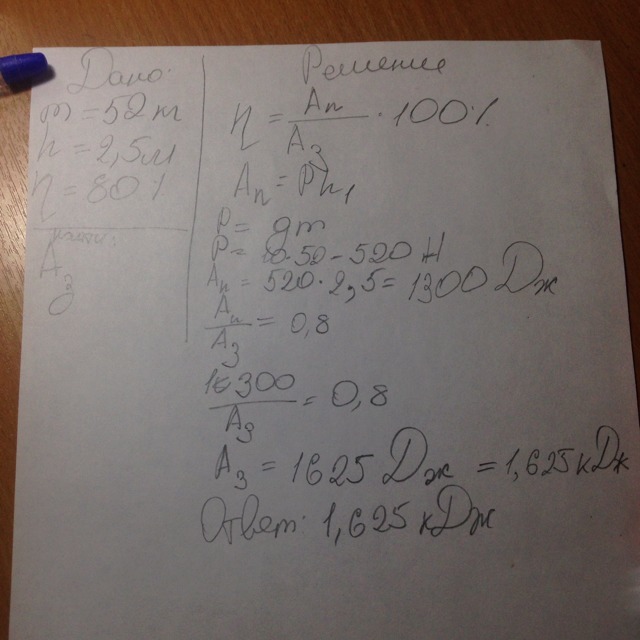 Дано:
m = 52 т
h = 2,5 м
η = 80%
Aз
Решение
η = Aп / Aз · 100%
Aп = Ph₁
P = gm
P = 10·50 - 520 Н
Aп = 520 · 2,5 = 1300 Дж
Aп / Aз = 0,8
1300 / Aз = 0,8
Aз = 1625 Дж = 1,625 кДж
Ответ: 1,625 кДж